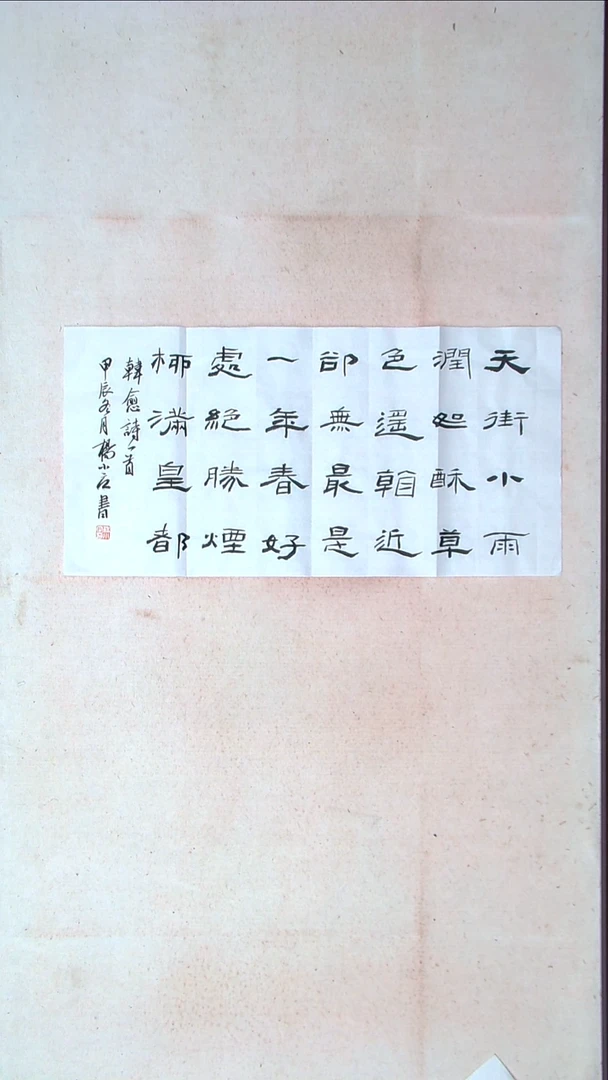 天街小雨
潤如酥草
色遙看近
卻無最是
一年春好
處絕勝煙
柳滿皇都
韓愈詩一首
甲辰冬月楊小書